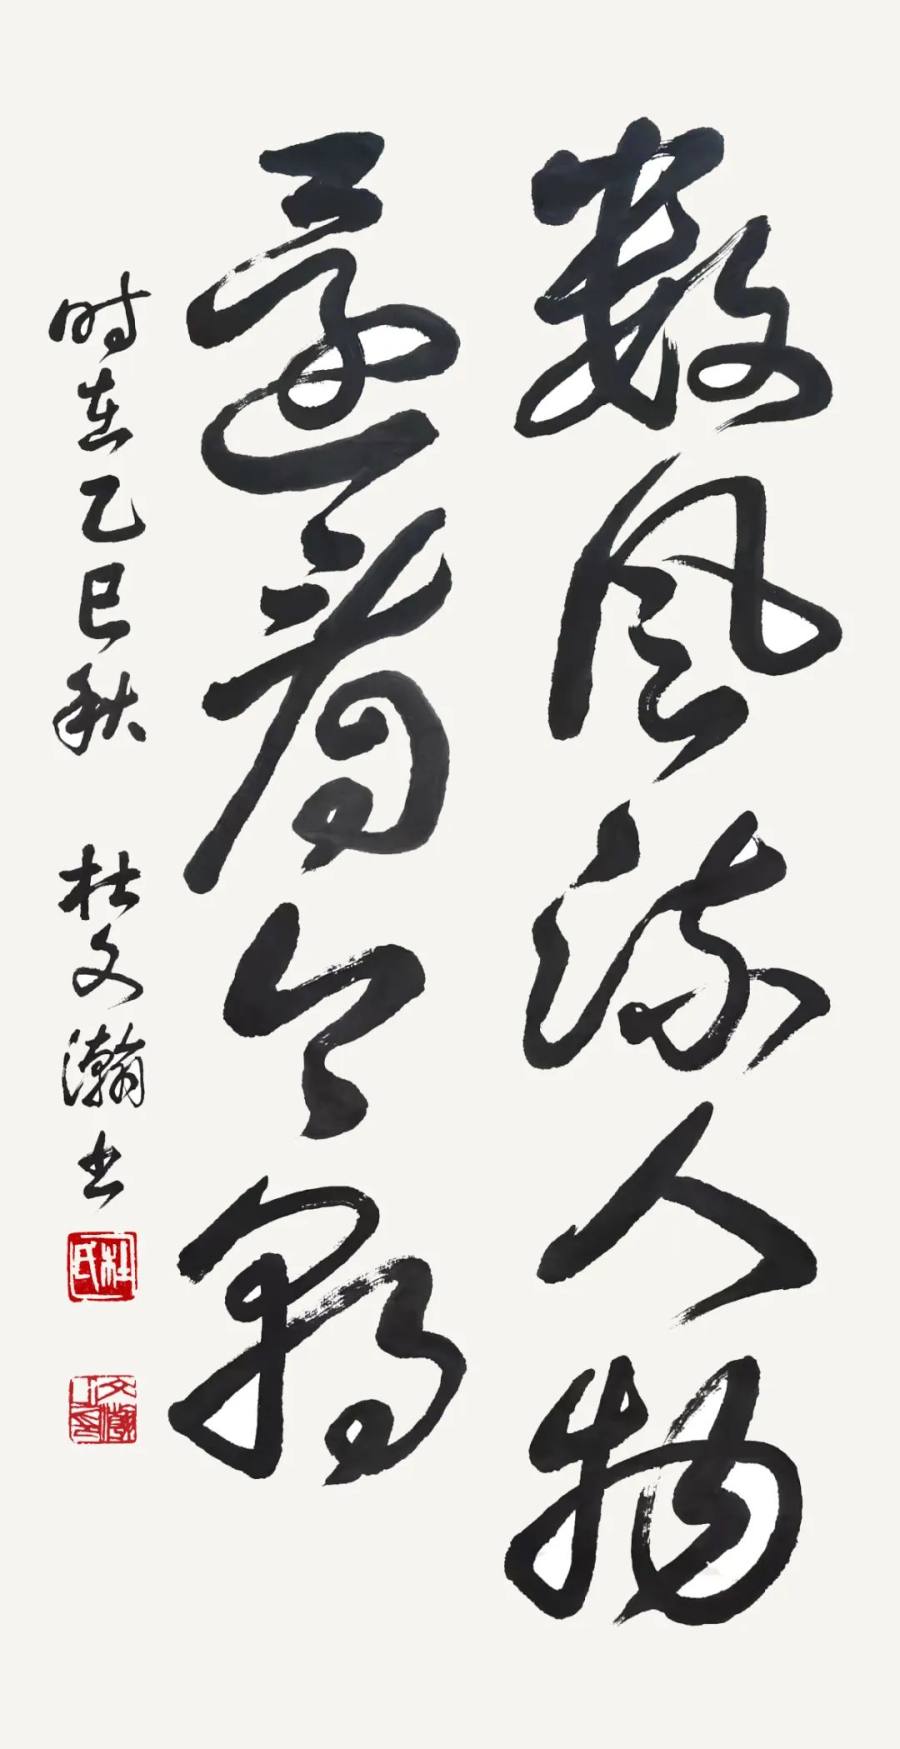 数风流人物
还看今朝
时在乙巳秋 杜文瀚书
杜氏
文瀚之印